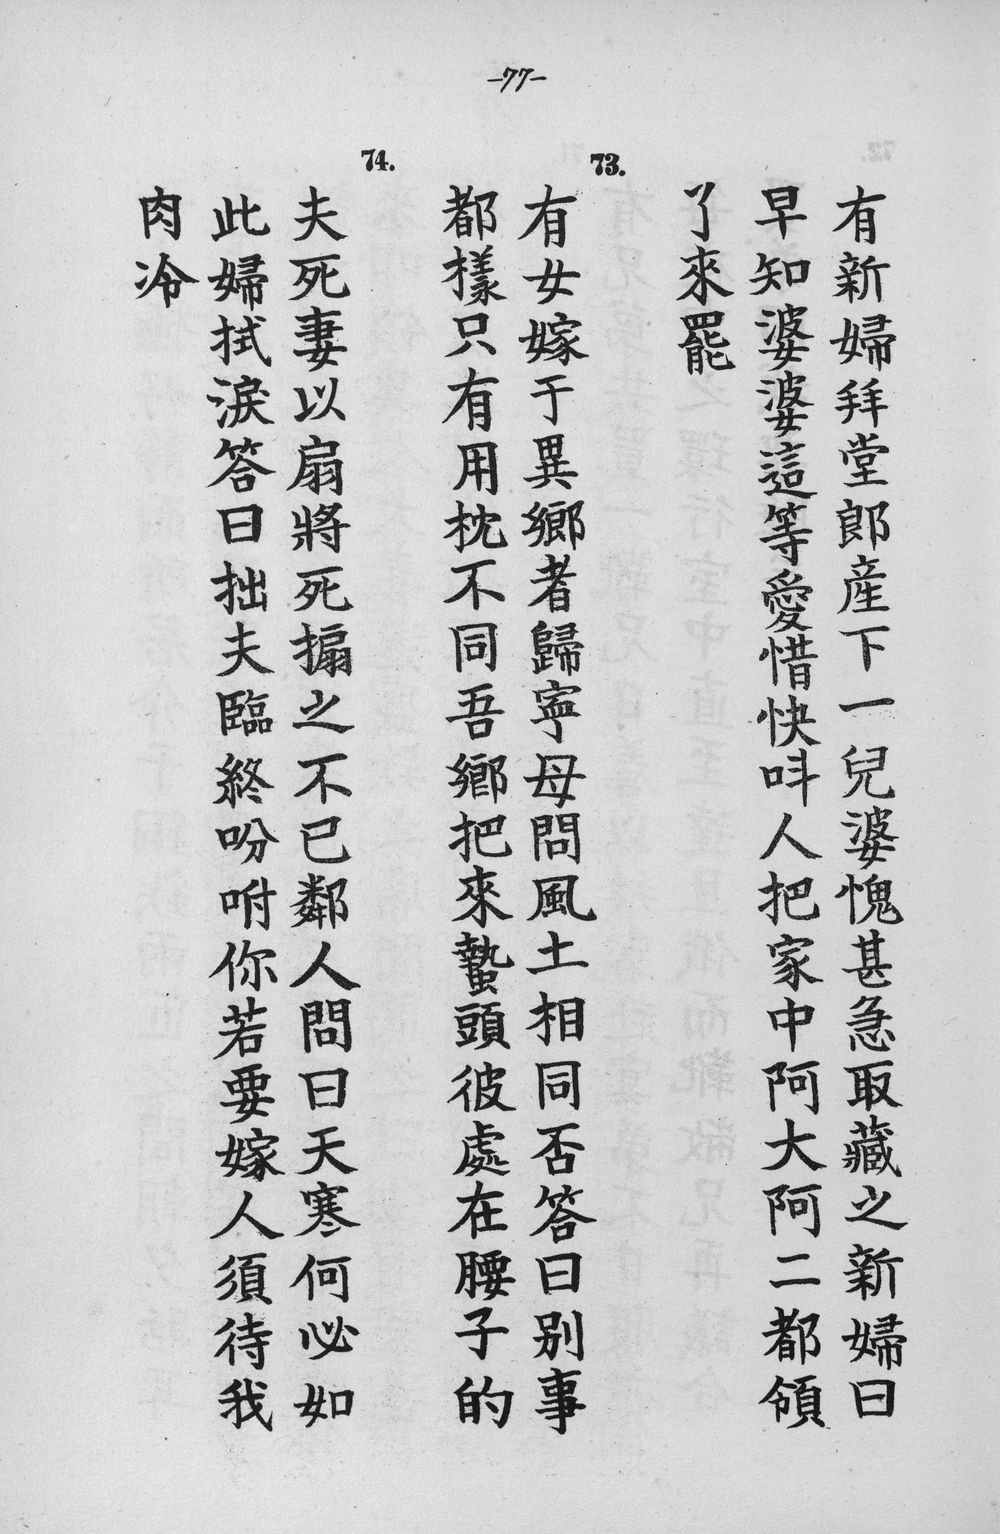 -77-
有新婦拜堂郎産下一兒婆愧甚急取藏之新婦曰
早知婆婆這等愛惜快呌人把家中阿大阿二都領
了來罷
73.
有女嫁于異鄉者歸寧母問風土相同否答曰別事
都㨾只有用枕不同吾鄉把來蟄頭彼處在腰子的
74.
夫死妻以扇將死搧之不已鄰人問曰天寒何必如
此婦拭淚答曰拙夫臨終吩咐你若要嫁人須待我
肉冷